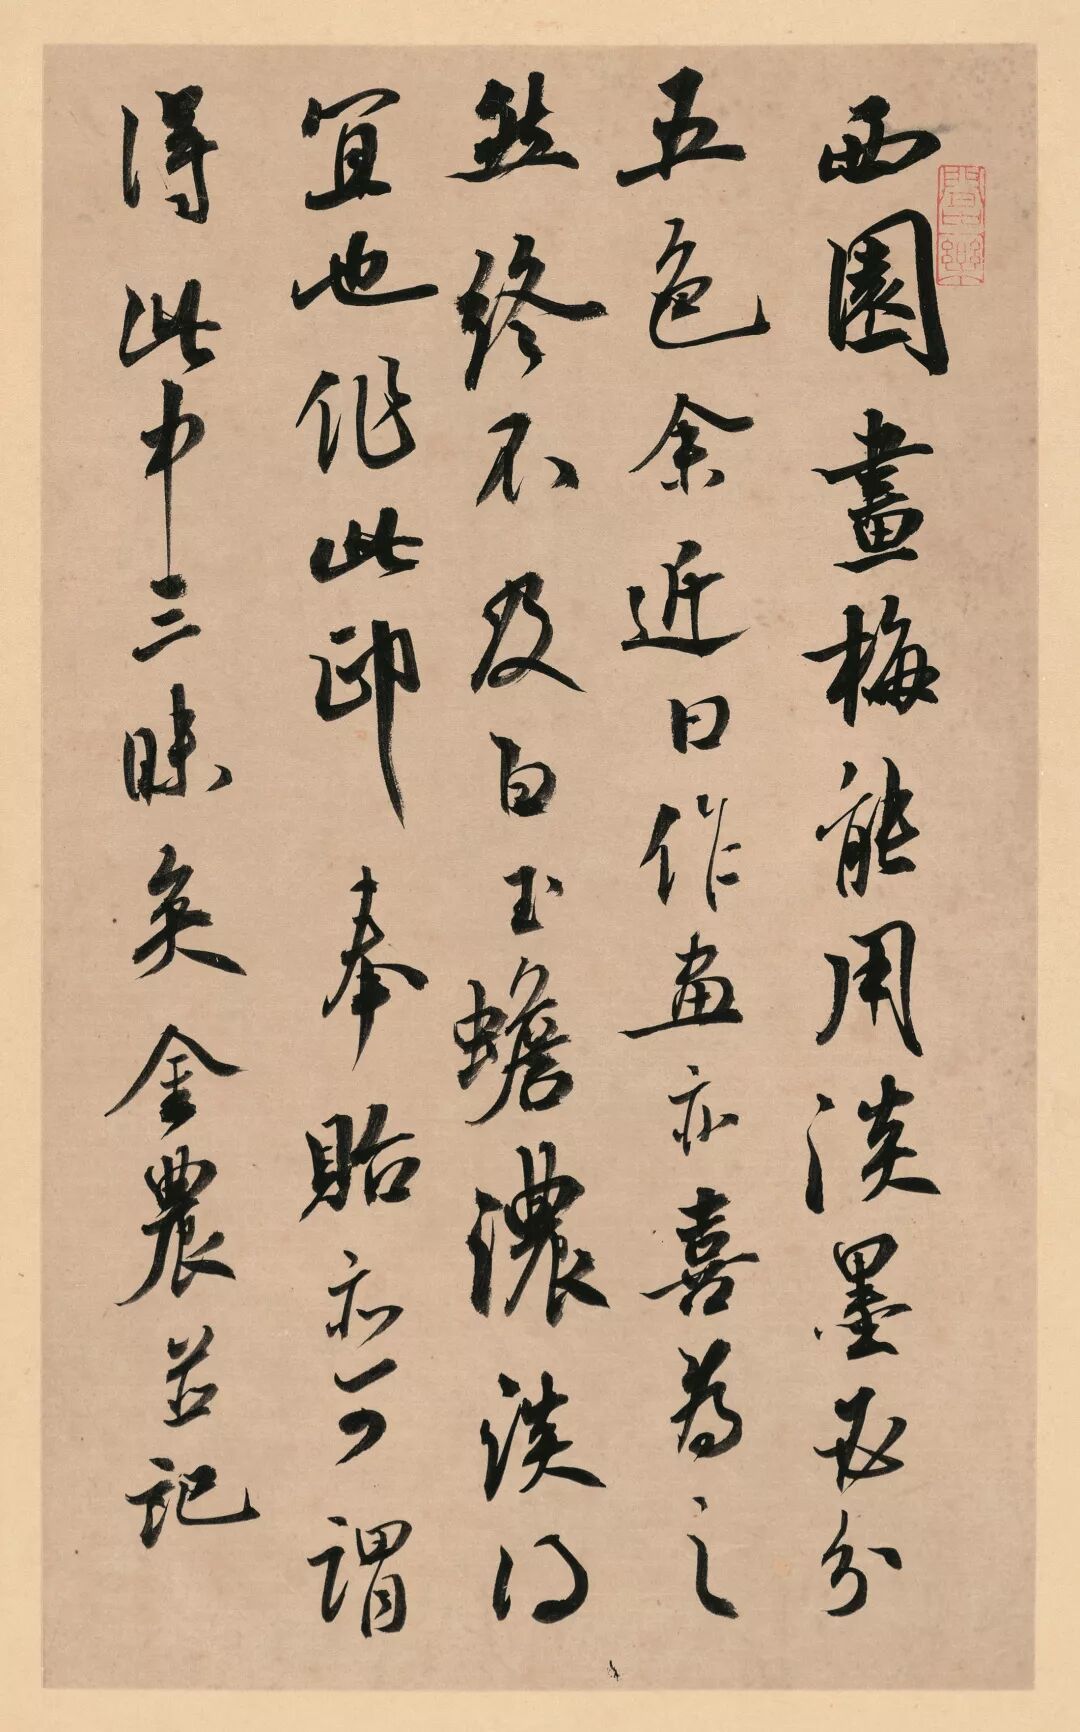 西園畫梅能用淡墨又分
五色余近日作画亦喜為之
然終不及白玉蟾濃淡得
宜也作此印奉貽亦可謂
得此中三昧矣金農並記